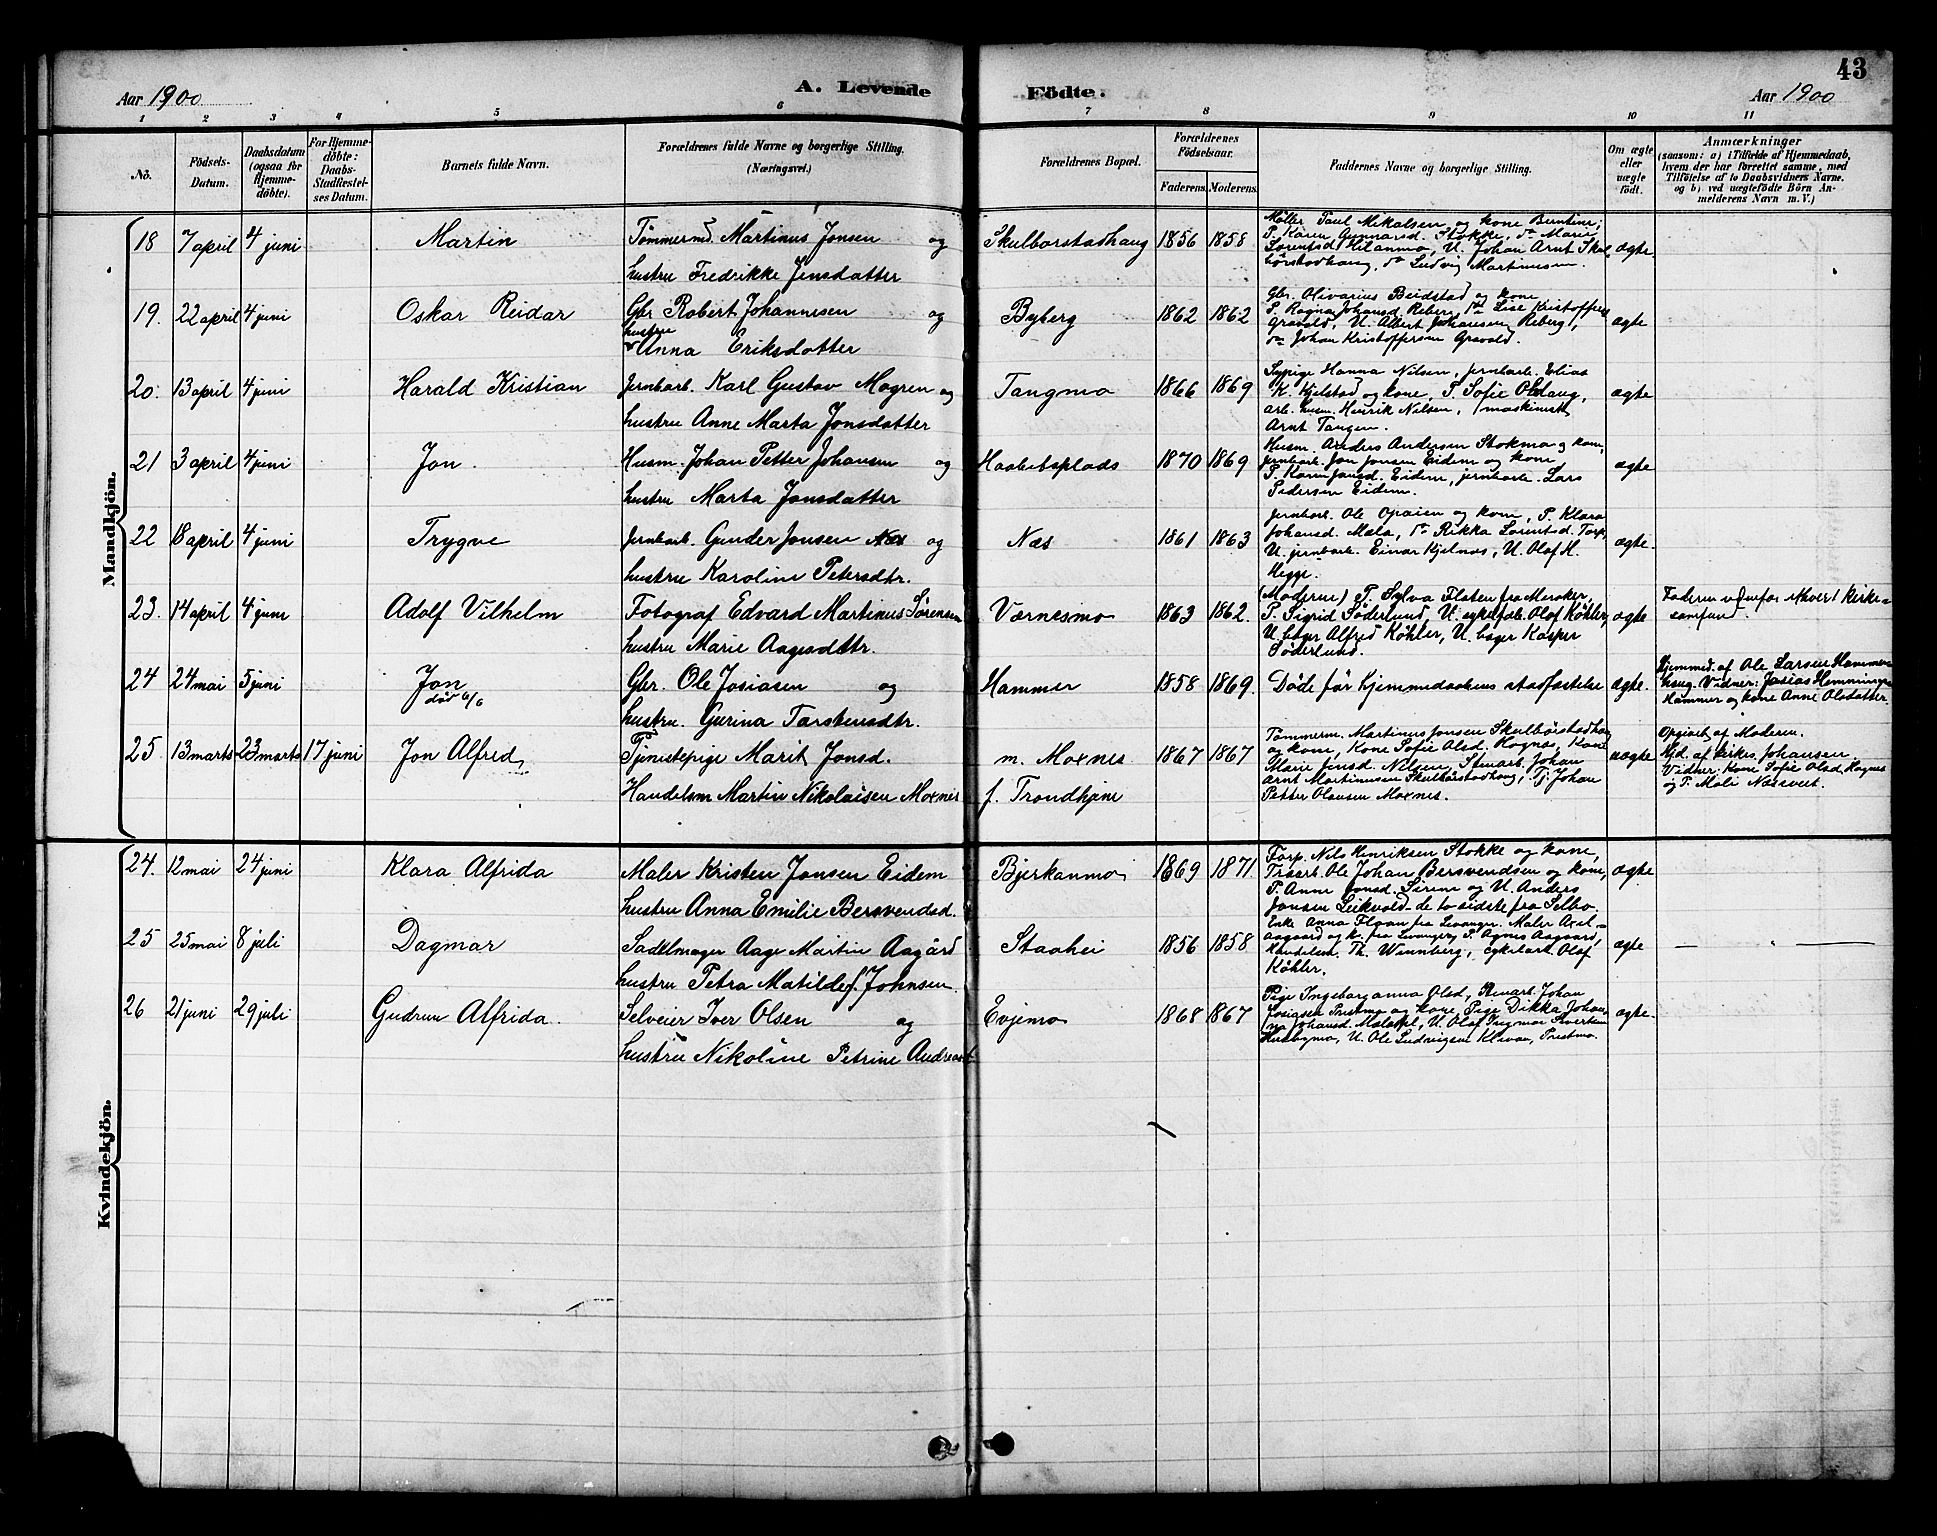 43
Aar 1900
A. Levende Födte.
Aar 1900
1 2 3 4 5 6 7 8 9 10 11
No.
Födsels-Datum.
Daabsdatum (ogsaa for Hjemmedöbte).
For Hjemmedöbte: Daabs-Stadfæstelses Datum.
Barnets fulde Navn.
Forældrenes fulde Navne og borgerlige Stilling.
(Næringsvei.)
Forældrenes Bopæl.
Forældrenes Födselsaar.
Faderens. Moderens.
Faddernes Navne og borgerlige Stilling.
Om ægte eller uægte födt.
Anmærkninger
(saasom: a) i Tilfælde af Hjemmedaab, hvem der har forrettet samme, med Tilföielse af to Daabsvidners Navne, og b) ved uægtefödte Börn Anmelderens Navn m. V.)
Mandkjön.
18 7 april 4 juni Martin
Tömmermd. Martinus Jonsen og
hustru Fredrikke Jensdatter
Skulborstadhaug 1856 1858
Möller Paul Mikalsen og kone Berntine,
P. Karen Gunnarsd. Stokke, do Marie
Lorentsd. Hilanmo, U. Johan Arnt Skul-
börstadhaug, do Ludvig Martinusen.
ægte.
19. 22 april 4 juni Oskar Reidar
Gbr Robert Johannesen og
hustru
Anna Eriksdatter
Byberg 1862 1862
Gbr. Olivarius Beidstad og kone
P. Ragna Johansd. Reberg, do Lise Kristoffers
Gravold, U. Albert Johansen Reberg,
do Johan Kristoffersen Gravold.
ægte
20. 13 april 4 juni Harald Kristian
Jernbarb. Karl Gustav Mogren og
hustru Anne Marta Jonsdatter
Tangmo 1866 1869
Sypige Hanna Nilsen, jernbarb. Elias
K. Kjelstad og kone, P. Sofie Olsdaug,
arb. husm. Henrik Nilsen, maskinist
Arnt Tangen.
ægte
21 3 april 4 juni Jon
Husm. Johan Petter Johansen og
hustru Marta Jonsdatter
Haabetsplads 1870 1869
Husm. Anders Andersen Stokmo og kone,
jernbarb. Jon Jonsen Eidem og kone
P. Karen Jonsd. Eidem, jernbarb. Lars
Pedersen Eidem.
ægte
22 18 april 4 juni Trygve
Jernbarb. Gunder Jonsen Næs og
hustru Karoline Petersdtr.
Næs 1861 1863
Jernbarb. Ole Opaien og kone, P. Klara
Johansd. Mæla, do Rikka Lorentsd. Torp,
U. jernbarb. Einar Kjelnæs, U. Olaf H.
Hegge.
ægte.
23. 14 april 4 juni Adolf Vilhelm
Fotograf Edvard Martinus Sörensen
hustru Marie Aagesdttr.
Værnesmo 1863 1862.
(Moderen) P. Sylva Flaten fra Meraker,
P. Sigrid Söderlund, U. cykelfab. Olaf Köhler,
U. bager Alfred Köhler, U. bager Kasper
Söderlund.
ægte
Faderen udenfor ethvert kirke-
samfund.
24 24 mai 5 juni Jon
död 6/6
Gbr. Ole Josiasen og
hustru. Gurina Torstensdtr.
Hammer 1858 1869.
Döde för hjemmedaabens stadfæstelse
ægte.
Hjemmed. af Ole Larsen Hammers-
haug. Vidner: Josias Hemmings.
Hammer og kone Anne Olsdatter.
25. 13 marts 23 marts 17 juni Jon Alfred
Tjenestepige Marit Jonsd.
Handelsm Martin Nikolaisen Moxnes
m. Moxnes
f. Trondhjem
1867 1867
Tömmerm. Martinus Jonsen Skulbörstadhaug
og kone, Kone Sofie Olsd. Hognæs, Kone
Marie Jensd. Nilsen, Stenarb. Johan
Arnt Martinussen Skulbörstadhaug, Tj. Johan
Petter Olausen Moxnes.
uægte
Opgivet af Moderen.
Hjd. af kirkes. Johansen.
Vidner: Kone Sofie Olsd. Hognes
og P. Mali Næsvest.
Kvindekjön.
24. 12 mai 24 juni Klara Alfrida
Maler Kristen Jonsen Eidem
hustru Anna Emilie Bersvendsd.
Bjerkanmo 1869 1871
Forp. Nils Henriksen Stokke og kone,
Træarb. Ole Johan Bersvendsen og kone,
P. Anne Jonsd. Sirem og U. Anders
Jonsen Leikvold - de to sidste fra Selbo.
ægte
25 25 mai 8 juli Dagmar
Sadelmager Aage Martin Aagård
hustru Petra Matilde f. Johnsen
Staahei 1856 1858
Enke Anna Floan fra Levanger. Maler Axel
Aagaard og k. fra Levanger, P. Agnes Aagaard,
Handelsm. Th. Wennberg, cykelarb. Olaf
Köhler.
ægte
26 21 juni 29 juli Gudrun Alfrida.
Selveier Iver Olsen og
hustru Nikoline Petrine Andreasd.
Evjemo 1868 1867
Pige Ingeborganna Olsd, Stenarb. Johan
Josiasen Prestmo og kone, Pige Dikka Johan-
na Johansd. Mælapl, U. Olaf Ingmar Sivertsen
Husbymo, U. Ole Ludvigsen Klivan, Prestmo.
ægte.